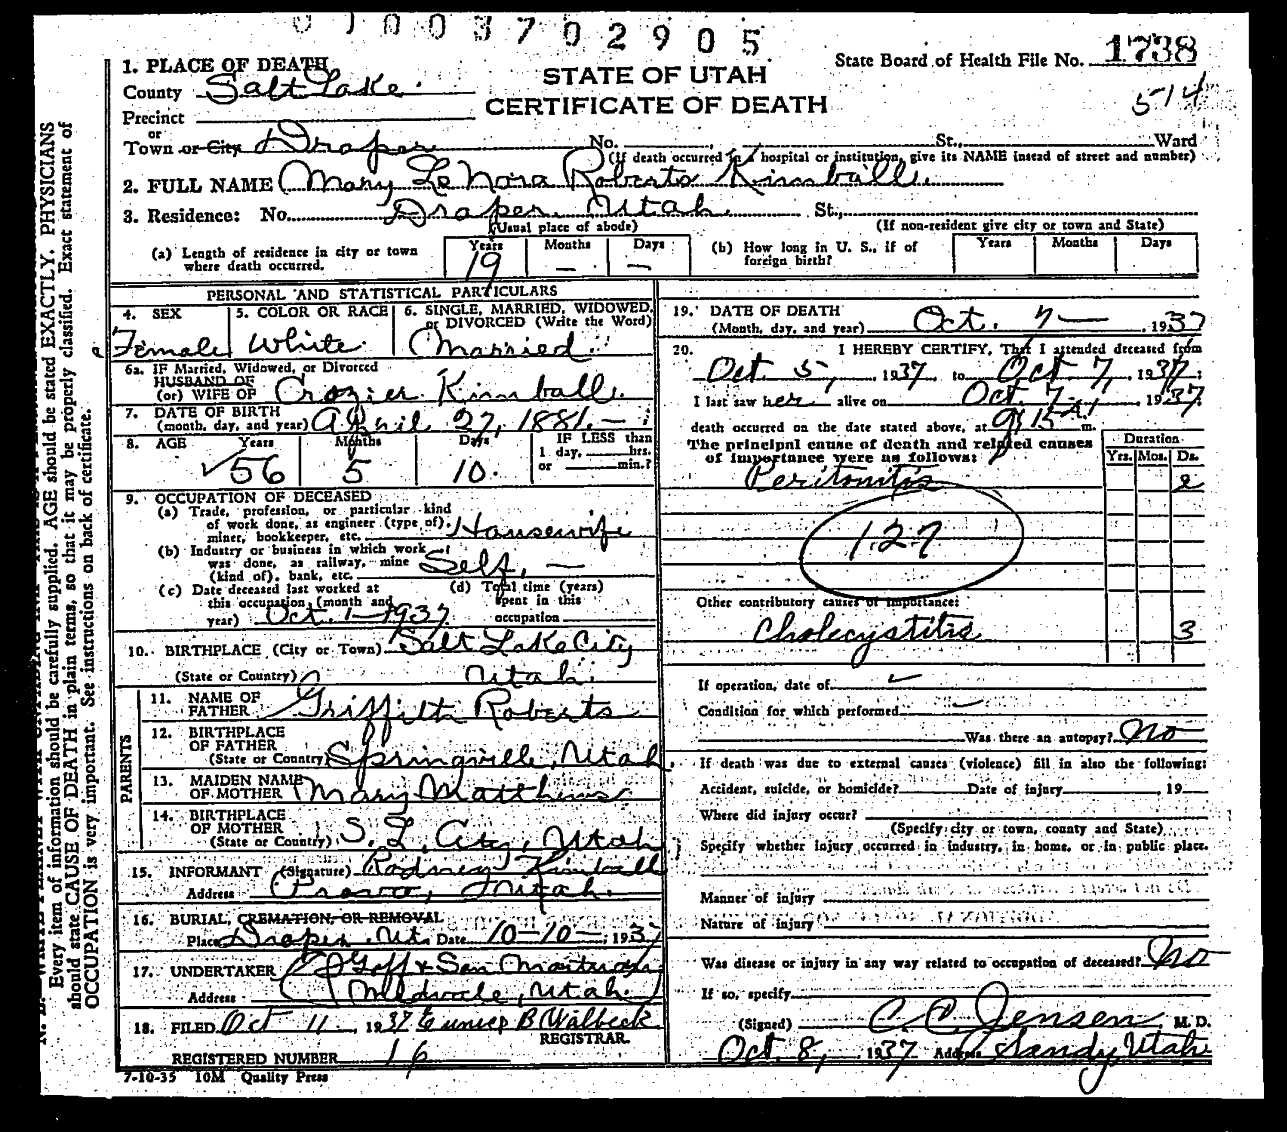 0 1 0 0 3 7 0 2 9 0 5
State Board of Health File No. 1738
514
STATE OF UTAH
CERTIFICATE OF DEATH
1. PLACE OF DEATH
County Salt Lake.
Precinct
or
Town or City Draper No. St., Ward
(If death occurred in a hospital or institution, give its NAME insead of street and number)
2. FULL NAME Mary LeNora Roberts Kimball.
3. Residence: No. Draper, Utah. St.,
(Usual place of abode) (If non-resident give city or town and State)
(a) Length of residence in city or town where death occurred. Years 19 Months — Days —
(b) How long in U. S., if of foreign birth? Years Months Days
PERSONAL AND STATISTICAL PARTICULARS
4. SEX Female
5. COLOR OR RACE White.
6. SINGLE, MARRIED, WIDOWED, or DIVORCED (Write the Word) Married.
6a. IF Married, Widowed, or Divorced
HUSBAND OF
(or) WIFE OF Crozier Kimball.
7. DATE OF BIRTH
(month, day, and year) April 27, 1881. —
8. AGE Years 56 Months 5 Days 10. IF LESS than 1 day, hrs. or min.?
9. OCCUPATION OF DECEASED
(a) Trade, profession, or particular kind
of work done, as engineer (type of),
miner, bookkeeper, etc. Housewife
(b) Industry or business in which work
was done, as railway, mine
(kind of), bank, etc. Self, —
(c) Date deceased last worked at
this occupation (month and
year) Oct. 1—1937
(d) Total time (years)
spent in this
occupation
10. BIRTHPLACE (City or Town) Salt Lake City
(State or Country) Utah.
PARENTS
11. NAME OF FATHER Griffith Roberts
12. BIRTHPLACE OF FATHER
(State or Country) Springville, Utah.
13. MAIDEN NAME OF MOTHER Mary Matthews
14. BIRTHPLACE OF MOTHER
(State or Country) S. L. City, Utah
15. INFORMANT (Signature) Rodney Kimball
Address Provo, Utah.
16. BURIAL, CREMATION, OR REMOVAL
Place Draper, Ut. Date 10-10-, 1937
17. UNDERTAKER Goff & Son Mortuary
Address Midvale, Utah.
18. FILED Oct 11, 1937 Eunice B Walbeck
REGISTRAR.
REGISTERED NUMBER 16
7-10-35 10M Quality Press
19. DATE OF DEATH
(Month, day, and year) Oct. 7—, 1937
20. I HEREBY CERTIFY, That I attended deceased from
Oct. 5, 1937 to Oct. 7, 1937;
I last saw her alive on Oct. 7, 1937;
death occurred on the date stated above, at 9:15 A m.
The principal cause of death and related causes
of importance were as follows:
Duration
Yrs. Mos. Ds.
Peritonitis 2
127
Other contributory causes of importance:
Cholecystitis 3
If operation, date of
Condition for which performed —
Was there an autopsy? No
If death was due to external causes (violence) fill in also the following:
Accident, suicide, or homicide? Date of injury , 19
Where did injury occur?
(Specify city or town, county and State)
Specify whether injury occurred in industry, in home, or in public place.
Manner of injury
Nature of injury
Was disease or injury in any way related to occupation of deceased? No
If so, specify
(Signed) C. C. Jensen, M. D.
Oct. 8, 1937 Address Sandy Utah
Every item of information should be carefully supplied. AGE should be stated EXACTLY. PHYSICIANS
should state CAUSE OF DEATH in plain terms, so that it may be properly classified. Exact statement of
OCCUPATION is very important. See instructions on back of certificate.